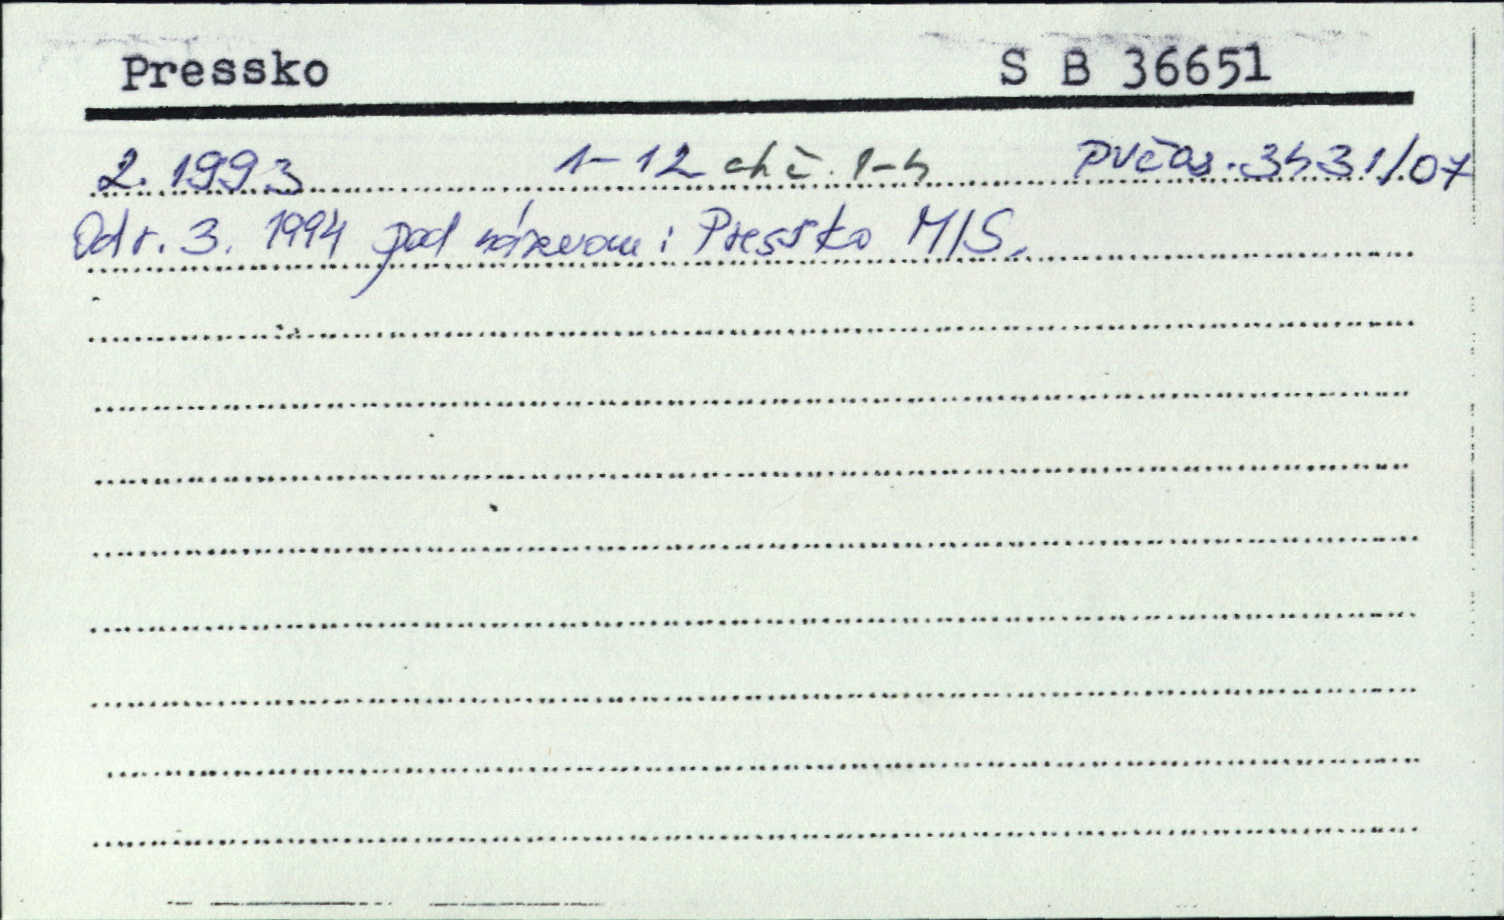 Pressko S B 36651
2. 1993 1-12 ch č. 1-4 PVčas. 3431/07
Od r. 3. 1994 pod názvom: Pressko M/S.